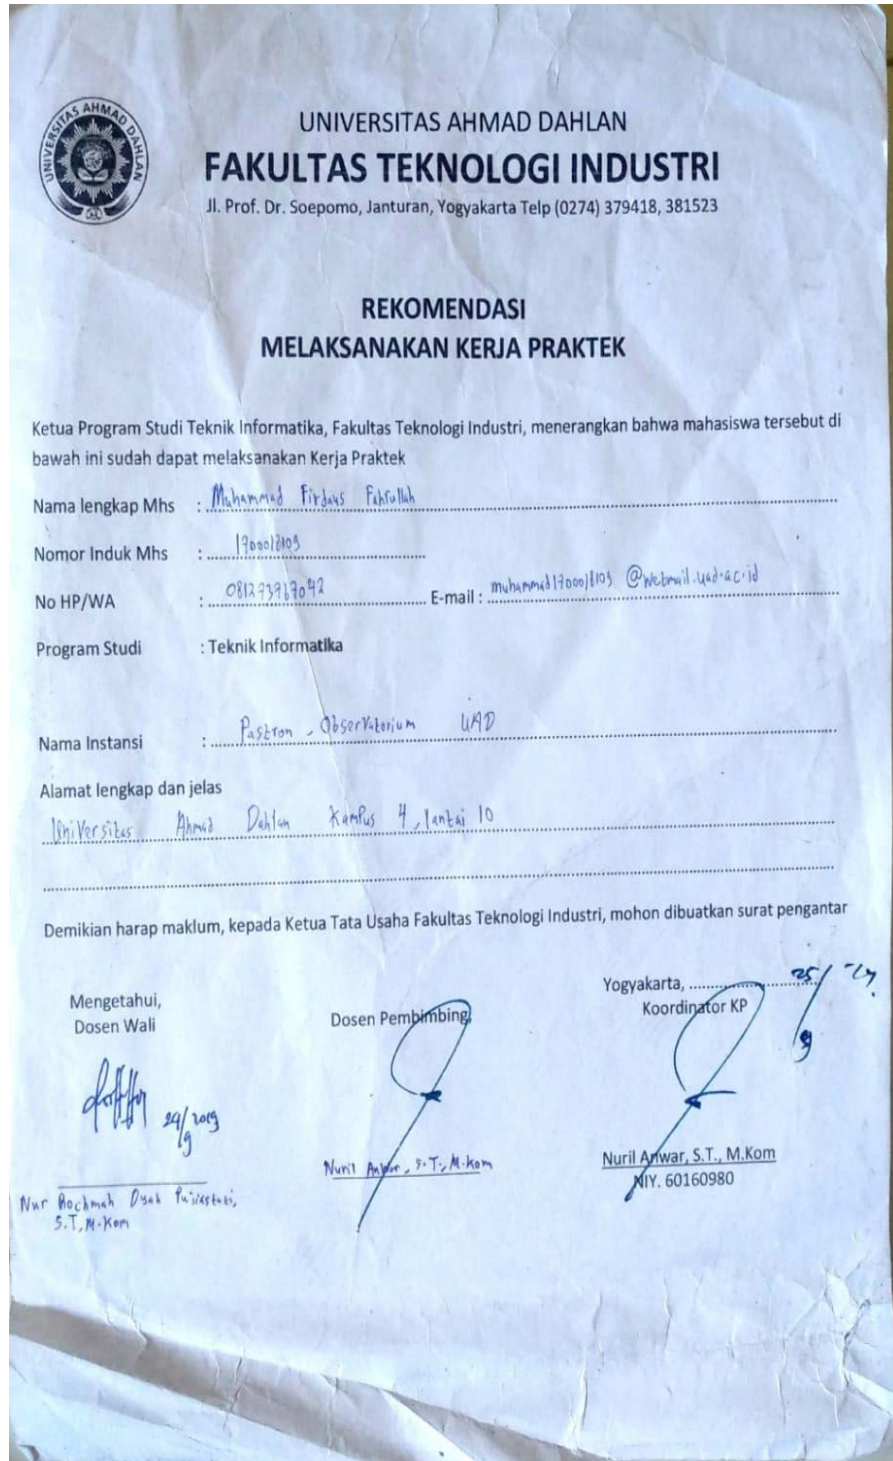 UNIVERSITAS AHMAD DAHLAN
UNIVERSITAS AHMAD DAHLAN
FAKULTAS TEKNOLOGI INDUSTRI
Jl. Prof. Dr. Soepomo, Janturan, Yogyakarta Telp (0274) 379418, 381523
REKOMENDASI
MELAKSANAKAN KERJA PRAKTEK
Ketua Program Studi Teknik Informatika, Fakultas Teknologi Industri, menerangkan bahwa mahasiswa tersebut di
bawah ini sudah dapat melaksanakan Kerja Praktek
Nama lengkap Mhs : Muhammad Firdaus Fahrullah
Nomor Induk Mhs : 1700018109
No HP/WA : E-mail : muhammad1700018109 @webmail.uad.ac.id
Program Studi : Teknik Informatika
Nama Instansi : Pastron, Observatorium UAD
Alamat lengkap dan jelas
Universitas Ahmad Dahlan Kampus 4, lantai 10
Demikian harap maklum, kepada Ketua Tata Usaha Fakultas Teknologi Industri, mohon dibuatkan surat pengantar
Yogyakarta, 25/9
Mengetahui,
Dosen Wali
Dosen Pembimbing,
Koordinator KP
24/9 2019
Nur Rochmah Dyah Pujiastuti,
S.T, M.Kom
Nuril Anwar, S.T., M.Kom
Nuril Anwar, S.T., M.Kom
NIY. 60160980